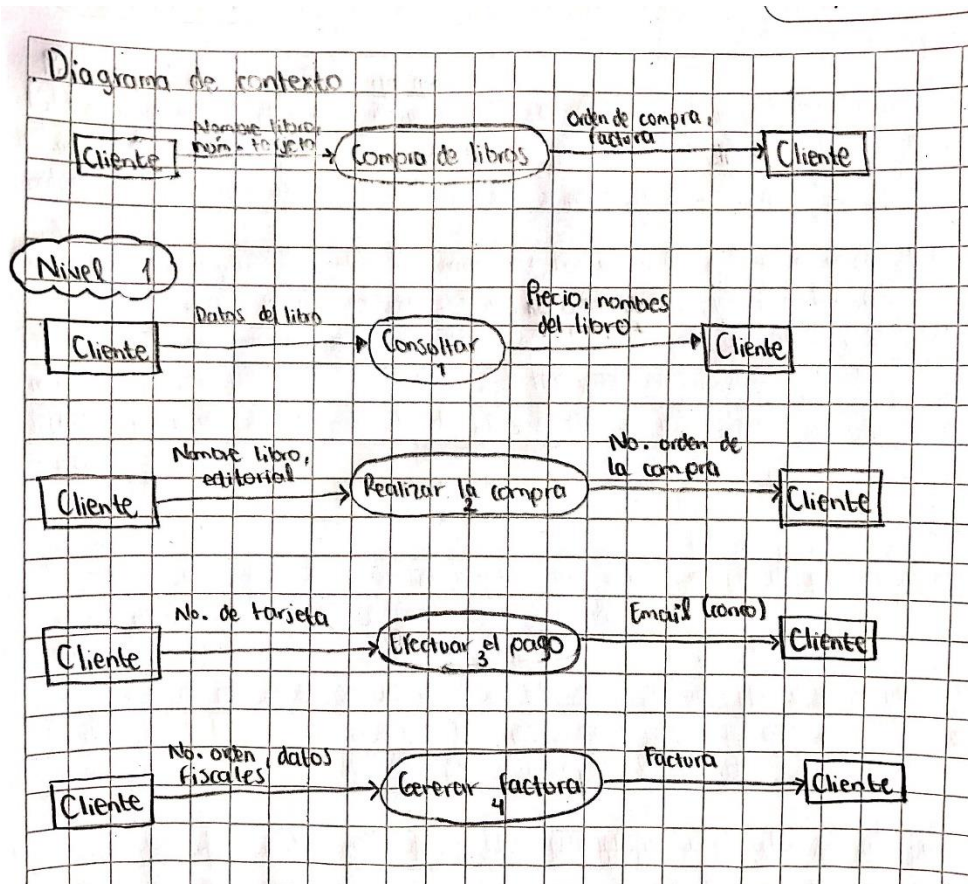 Diagrama de contexto
Cliente
Nombre libro,
núm. tarjeta
Compra de libros
Orden de compra,
factura
Cliente
Nivel 1
Cliente
Datos del libro
Consultar
1
Precio, nombres
del libro
Cliente
Cliente
Nombre libro,
editorial
Realizar la compra
2
No. orden de
la compra
Cliente
Cliente
No. de tarjeta
Efectuar el pago
3
Email (correo)
Cliente
Cliente
No. orden, datos
fiscales
Generar factura
4
Factura
Cliente